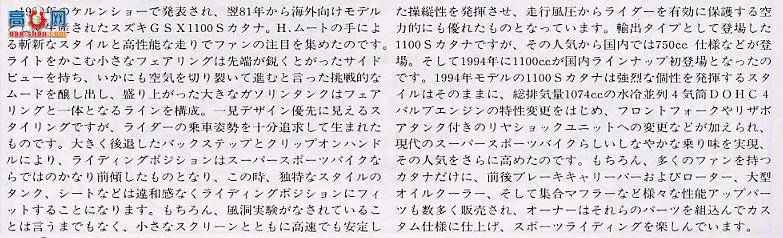 高品网
gao-shou.com
年のケルンショーで発表され、翌81年から海外向けモデル
されたスズキGSX1100Sカタナ。H.ムートの手によ
る斬新なスタイルと高性能な走りでファンの目注を集めたのです。
ライトをかこむ小さなフェアリングは先端が鋭くとがったサイド
ビューを持ち、いかにも空気を切り裂いて進むと言った挑戦的な
ムードを醸し出し、盛り上がった大きなガソリンタンクはフェア
リングと一体となるラインを構成。一見デザイン優先に見えるス
タイリングですが、ライダーの乗車姿勢を十分追求して生まれた
ものです。大きく後退したバックステップとクリップオンハンド
ルにより、ライディングポジションはスーパースポーツバイクな
らではのかなり前傾したものとなり、この時、独特なスタイルの
タンク、シートなどは違和感なくライディングポジションにフィ
ットすることになります。もちろん、風洞実験がなされているこ
とは言うまでもなく、小さなスクリーンとともに高速でも安定し
た操縦性を発揮させ、走行風圧からライダーを有効に保護する空
力的にも優れたものとなっています。輸出タイプとして登場した
1100Sカタナですが、その人気から国内では750cc 仕様などが登
場。そして1994年に1100ccが国内ラインナップ初登場となったの
です。1994年モデルの1100Sカタナは強烈な個性を発揮するスタ
イルはそのままに、総排気量1074ccの水冷並列4気筒DOHC4
バルブエンジンの特性変更をはじめ、フロントフォークやリザボ
アタンク付きのリヤショックユニットへの変更などが加えられ、
現代のスーパースポーツバイクらしいしなやかな乗り味を実現、
その人気をさらに高めたのです。もちろん、多くのファンを持つ
カタナだけに、前後ブレーキキャリーパーおよびローター、大型
オイルクーラー、そして集合マフラーなど様々な性能アップパー
ツも数多く販売され、オーナーはそれらのパーツを組込んでカス
タム仕様に仕上げ、スポーツライディングを楽しんでいます。